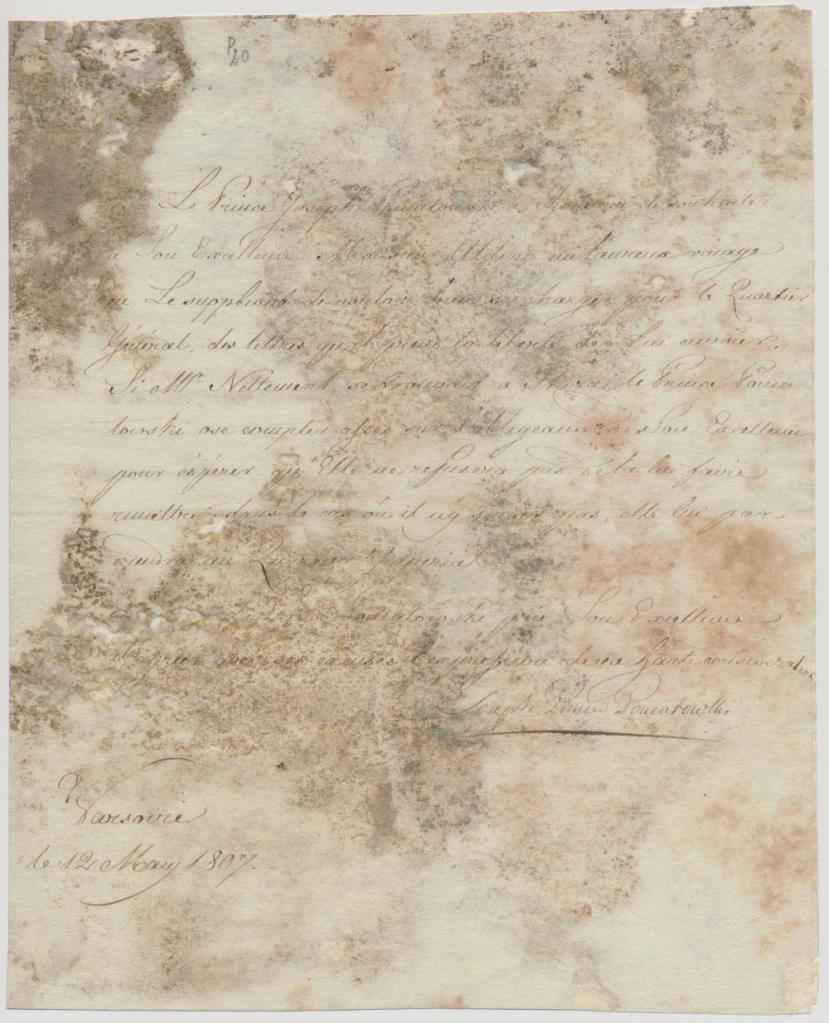 P 20
Le Prince Joseph Poniatowski a l'honneur de souhaiter
à Son Excellence Monsieur Aldini un heureux voiage
en Le suppliant de vouloir bien se charger pour le Quartier
Général, des lettres qu'il prend la liberté de Lui envoier.
Si Mr Nettement se trouvait à le Prince Ponia
towski ose compter assés sur l'obligeance de Son Excellence
pour espérer qu'Elle ne refusera pas de la lui faire
remettre dans le cas où il n'y serait pas, elle lui par-
viendra au Quartier Impérial.
Poniatowski prie Son Excellence
d'agréer avec ses excuses l'expression de sa haute considération
Joseph Prince Poniatowski
Varsovie
le 12 May 1807.